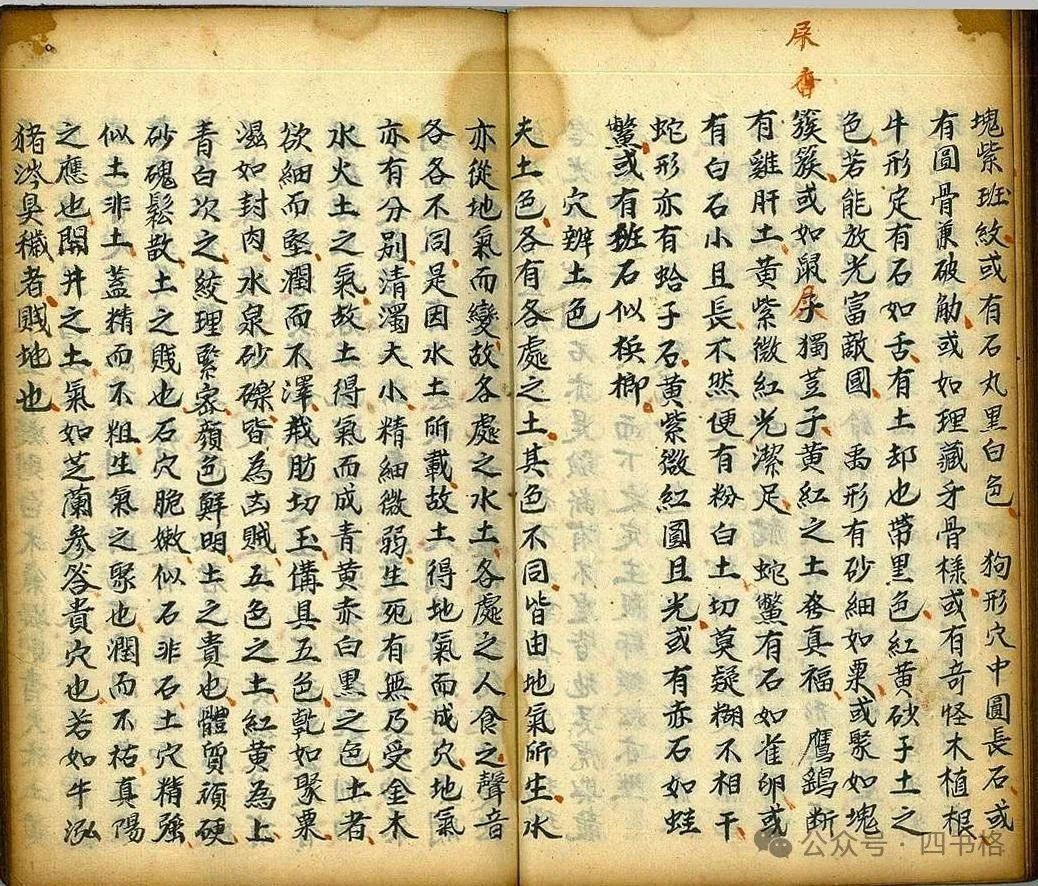 屎香
塊紫班紋或有石丸黑白色 狗形穴中圓長石或
有圓骨兼破觔或如理藏牙骨樣或有奇怪木植根
牛形定有石如舌有土却也帶黑色紅黃砂子土之
色若能放光富敵國 禹形有砂細如粟或聚如塊
簇簇或如鼠屎子獨荳子黃紅之土發真福 鷹鷂斷
有雞肝土黃紫微紅光潔足 蛇鱉有石如雀卵或
有白石小且長不然便有粉白土切莫疑糊不相干
蛇形亦有蛤子石黃紫微紅圓且光或有赤石如蛙
鱉或有班石似槟榔
穴辨土色
夫土色各有各處之土其色不同皆由地氣所生水
亦從地氣而變故各處之水土各處之人食之聲音
各各不同是因水土所載故土得地氣而成穴地氣
亦有分别清濁大小精細微弱生死有無乃受金木
水火土之氣故土得氣而成青黃赤白黑之色土者
欲細而堅潤而不澤裁肪切玉俻具五色乾如聚粟
濕如封肉水泉砂礫皆為凶賊五色之土紅黃為上
青白次之絞理緊密顏色鮮明土之貴也體質頑硬
砂磈鬆散土之賤也石穴脆嫩似石非石土穴精强
似土非土蓋精而不粗生氣之聚也潤而不枯真陽
之應也開井之土氣如芝蘭參苓貴穴也若如牛泓
猪涔臭穢者賤地也
公众号·四书格